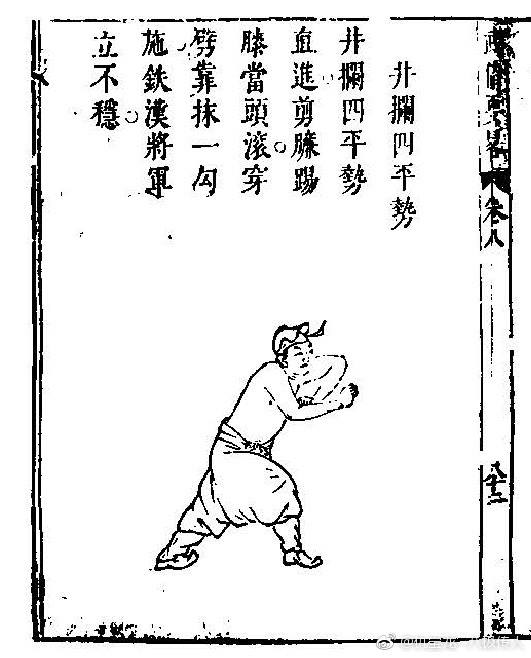 井攔四平勢
井攔四平勢
血進剪臁踢
膝當頭滾穿
劈靠抹一勾
施鉄漢將軍
立不穩
卷八
八十二